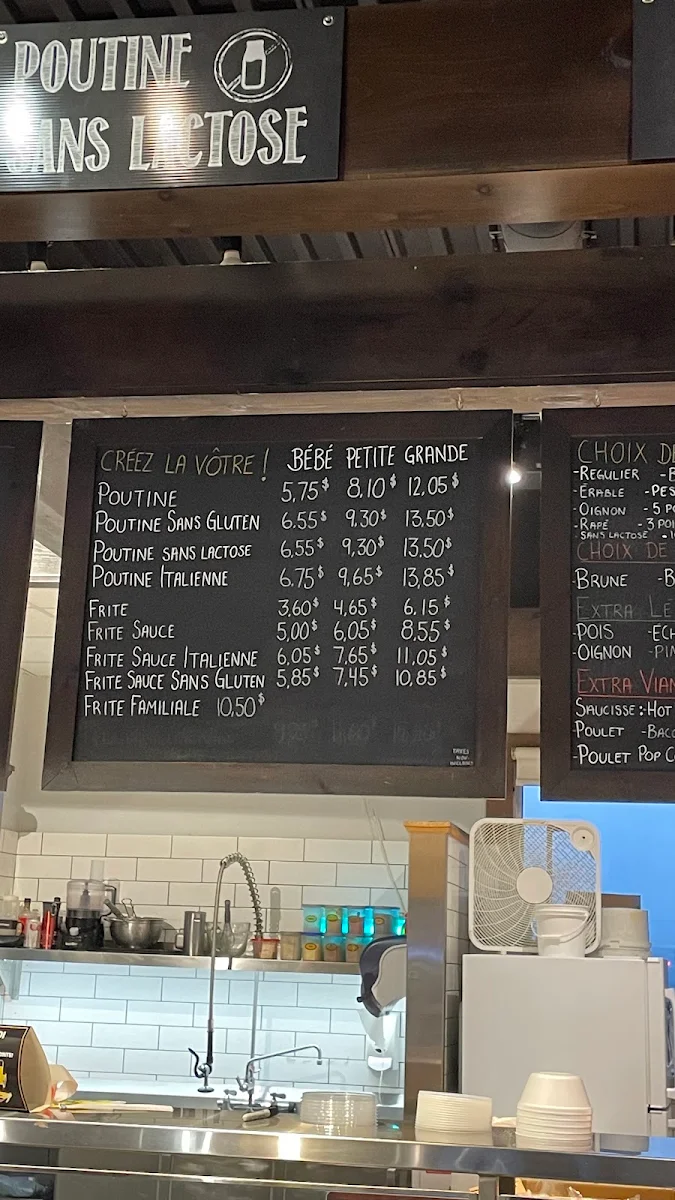 POUTINE
SANS LACTOSE
CRÉEZ LA VÔTRE! BÉBÉ PETITE GRANDE
POUTINE 5,75$ 8,10$ 12,05$
POUTINE SANS GLUTEN 6.55$ 9,30$ 13,50$
POUTINE SANS LACTOSE 6.55$ 9,30$ 13.50$
POUTINE ITALIENNE 6.75$ 9,65$ 13,85$
FRITE 3,60$ 4,65$ 6.15$
FRITE SAUCE 5,00$ 6,05$ 8.55$
FRITE SAUCE ITALIENNE 6.05$ 7,65$ 11,05$
FRITE SAUCE SANS GLUTEN 5,85$ 7,45$ 10,85$
FRITE FAMILIALE 10,50$
TAXES
NON
INCLUSES
CHOIX DE
-RÉGULIER
-ÉRABLE
-OIGNON - 5 PO
-RAPÉ - 3 POI
-SANS LACTOSE
CHOIX DE
-BRUNE
EXTRA LÉ
-POIS
-OIGNON
EXTRA VIAN
SAUCISSE: HOT
POULET -BAC
-POULET POP C